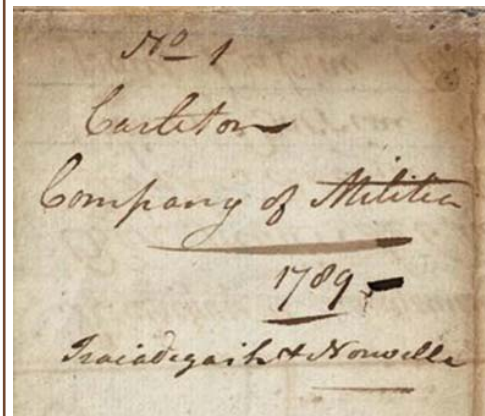 No 1
Carleton
Company of Militia
1789 -
Traciadigash & Nouvelle